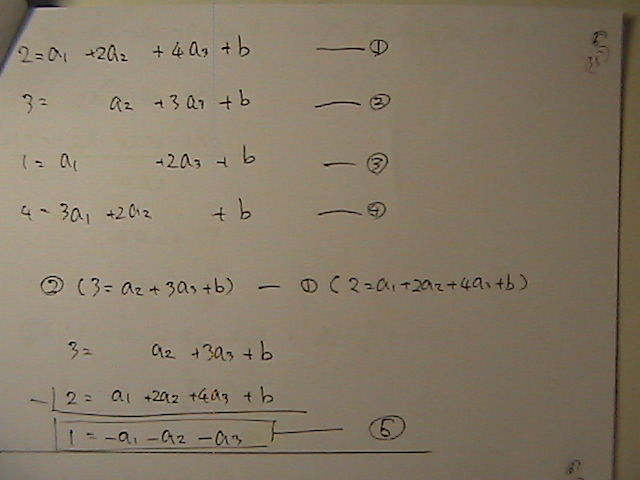 2=a₁ +2a₂ +4a₃ +b —— ①
3= a₂ +3a₃ +b —— ②
1= a₁ +2a₃ + b —— ③
4 = 3a₁ +2a₂ + b —— ④
② (3=a₂+3a₃+b) — ① (2=a₁+2a₂+4a₃+b)
3= a₂ +3a₃ +b
- 2= a₁ +2a₂ +4a₃ +b
1 = -a₁ -a₂ -a₃ —— ⑤